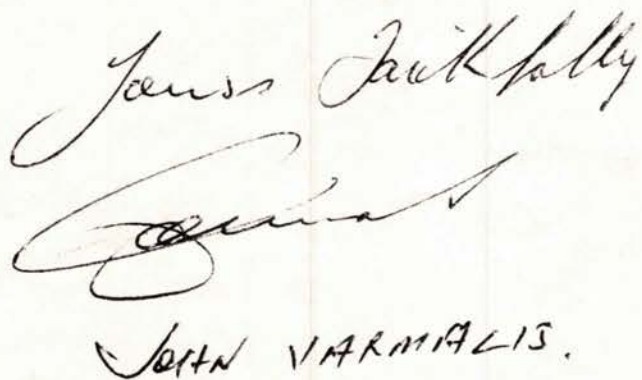 Yours Faithfully
JOHN VARMALIS.